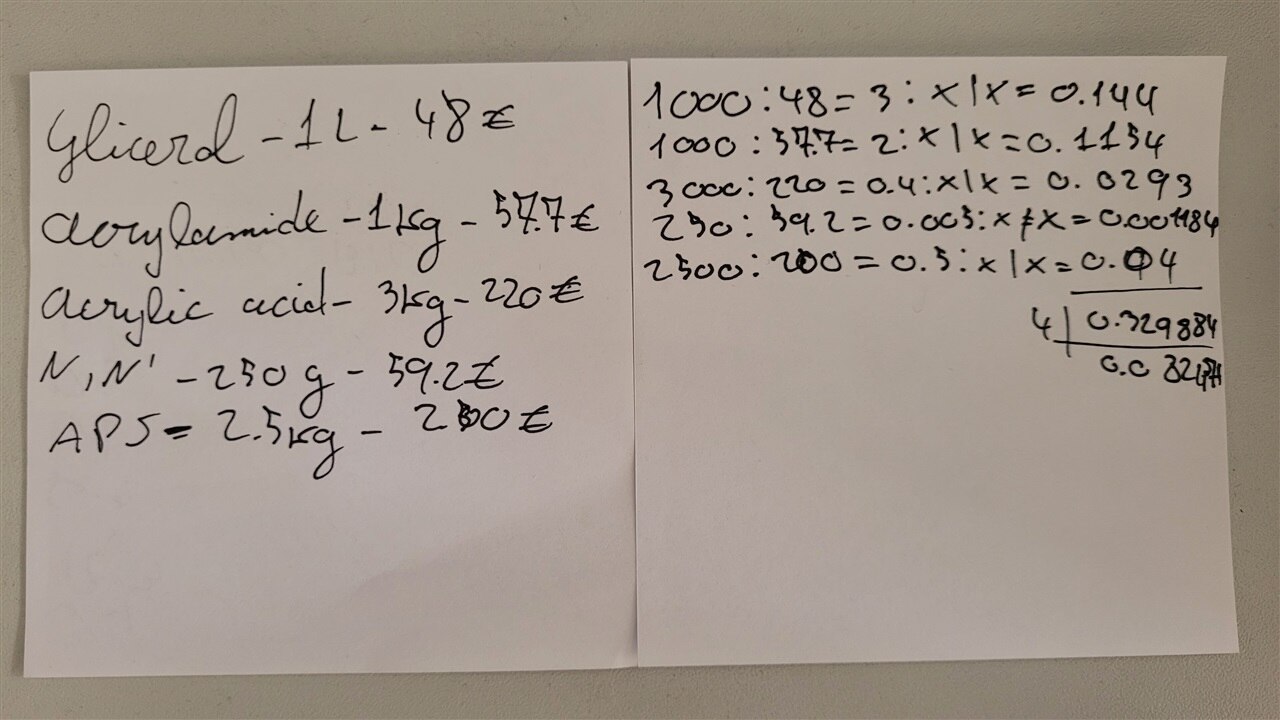 Glicerol - 1L - 48€
acrylamide - 1kg - 57.7€
acrylic acid - 3kg - 220€
N,N' - 250 g - 59.2€
APS = 2.5kg - €
1000 : 48 = 3 : x | x = 0.144
1000 : 57.7 = 2 : x | x = 0.1154
3000 : 220 = 0.4 : x | x = 0.0293
250 : 59.2 = 0.005 : x | x = 0.001184
2500 : 200 = 0.5 : x | x = 0.04
4 | 0.329884